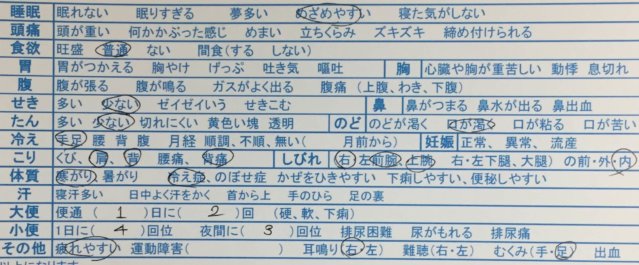 睡眠 眠れない 眠りすぎる 夢多い めざめやすい 寝た気がしない
頭痛 頭が重い 何かかぶった感じ めまい 立ちくらみ ズキズキ 締め付けられる
食欲 旺盛 普通 ない 間食(する しない)
胃 胃がつかえる 胸やけ げっぷ 吐き気 嘔吐 胸 心臓や胸が重苦しい 動悸 息切れ
腹 腹が張る 腹が鳴る ガスがよく出る 腹痛 (上腹、わき、下腹)
せき 多い 少ない ゼイゼイいう せきこむ 鼻 鼻がつまる 鼻水が出る 鼻出血
たん 多い 少ない 切れにくい 黄色い塊 透明 のど のどが渇く 口が渇く 口が粘る 口が苦い
冷え 手足 腰 背 腹 月経 順調、不順、無い( 月前から) 妊娠 正常、異常、流産
こり くび、肩、背 腰痛、背痛 しびれ 右・左前腕、上腕 右・左下腿、大腿) の前・外・内
体質 寒がり 暑がり 冷え症、のぼせ症 かぜをひきやすい 下痢しやすい、便秘しやすい
汗 寝汗多い 日中よく汗をかく 首から上 手のひら 足の裏
大便 便通 ( 1 )日に( 2 )回 (硬、軟、下痢)
小便 1日に( 4 )回位 夜間に( 3 )回位 排尿困難 尿がもれる 排尿痛
その他 疲れやすい 運動障害( ) 耳鳴り(右・左) 難聴(右・左) むくみ(手・足) 出血